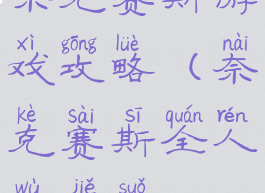 奈克赛斯游
xì gōng lüè nài
戏攻略（奈
kè sài sī quán rén
克赛斯全人
wù jiě suǒ